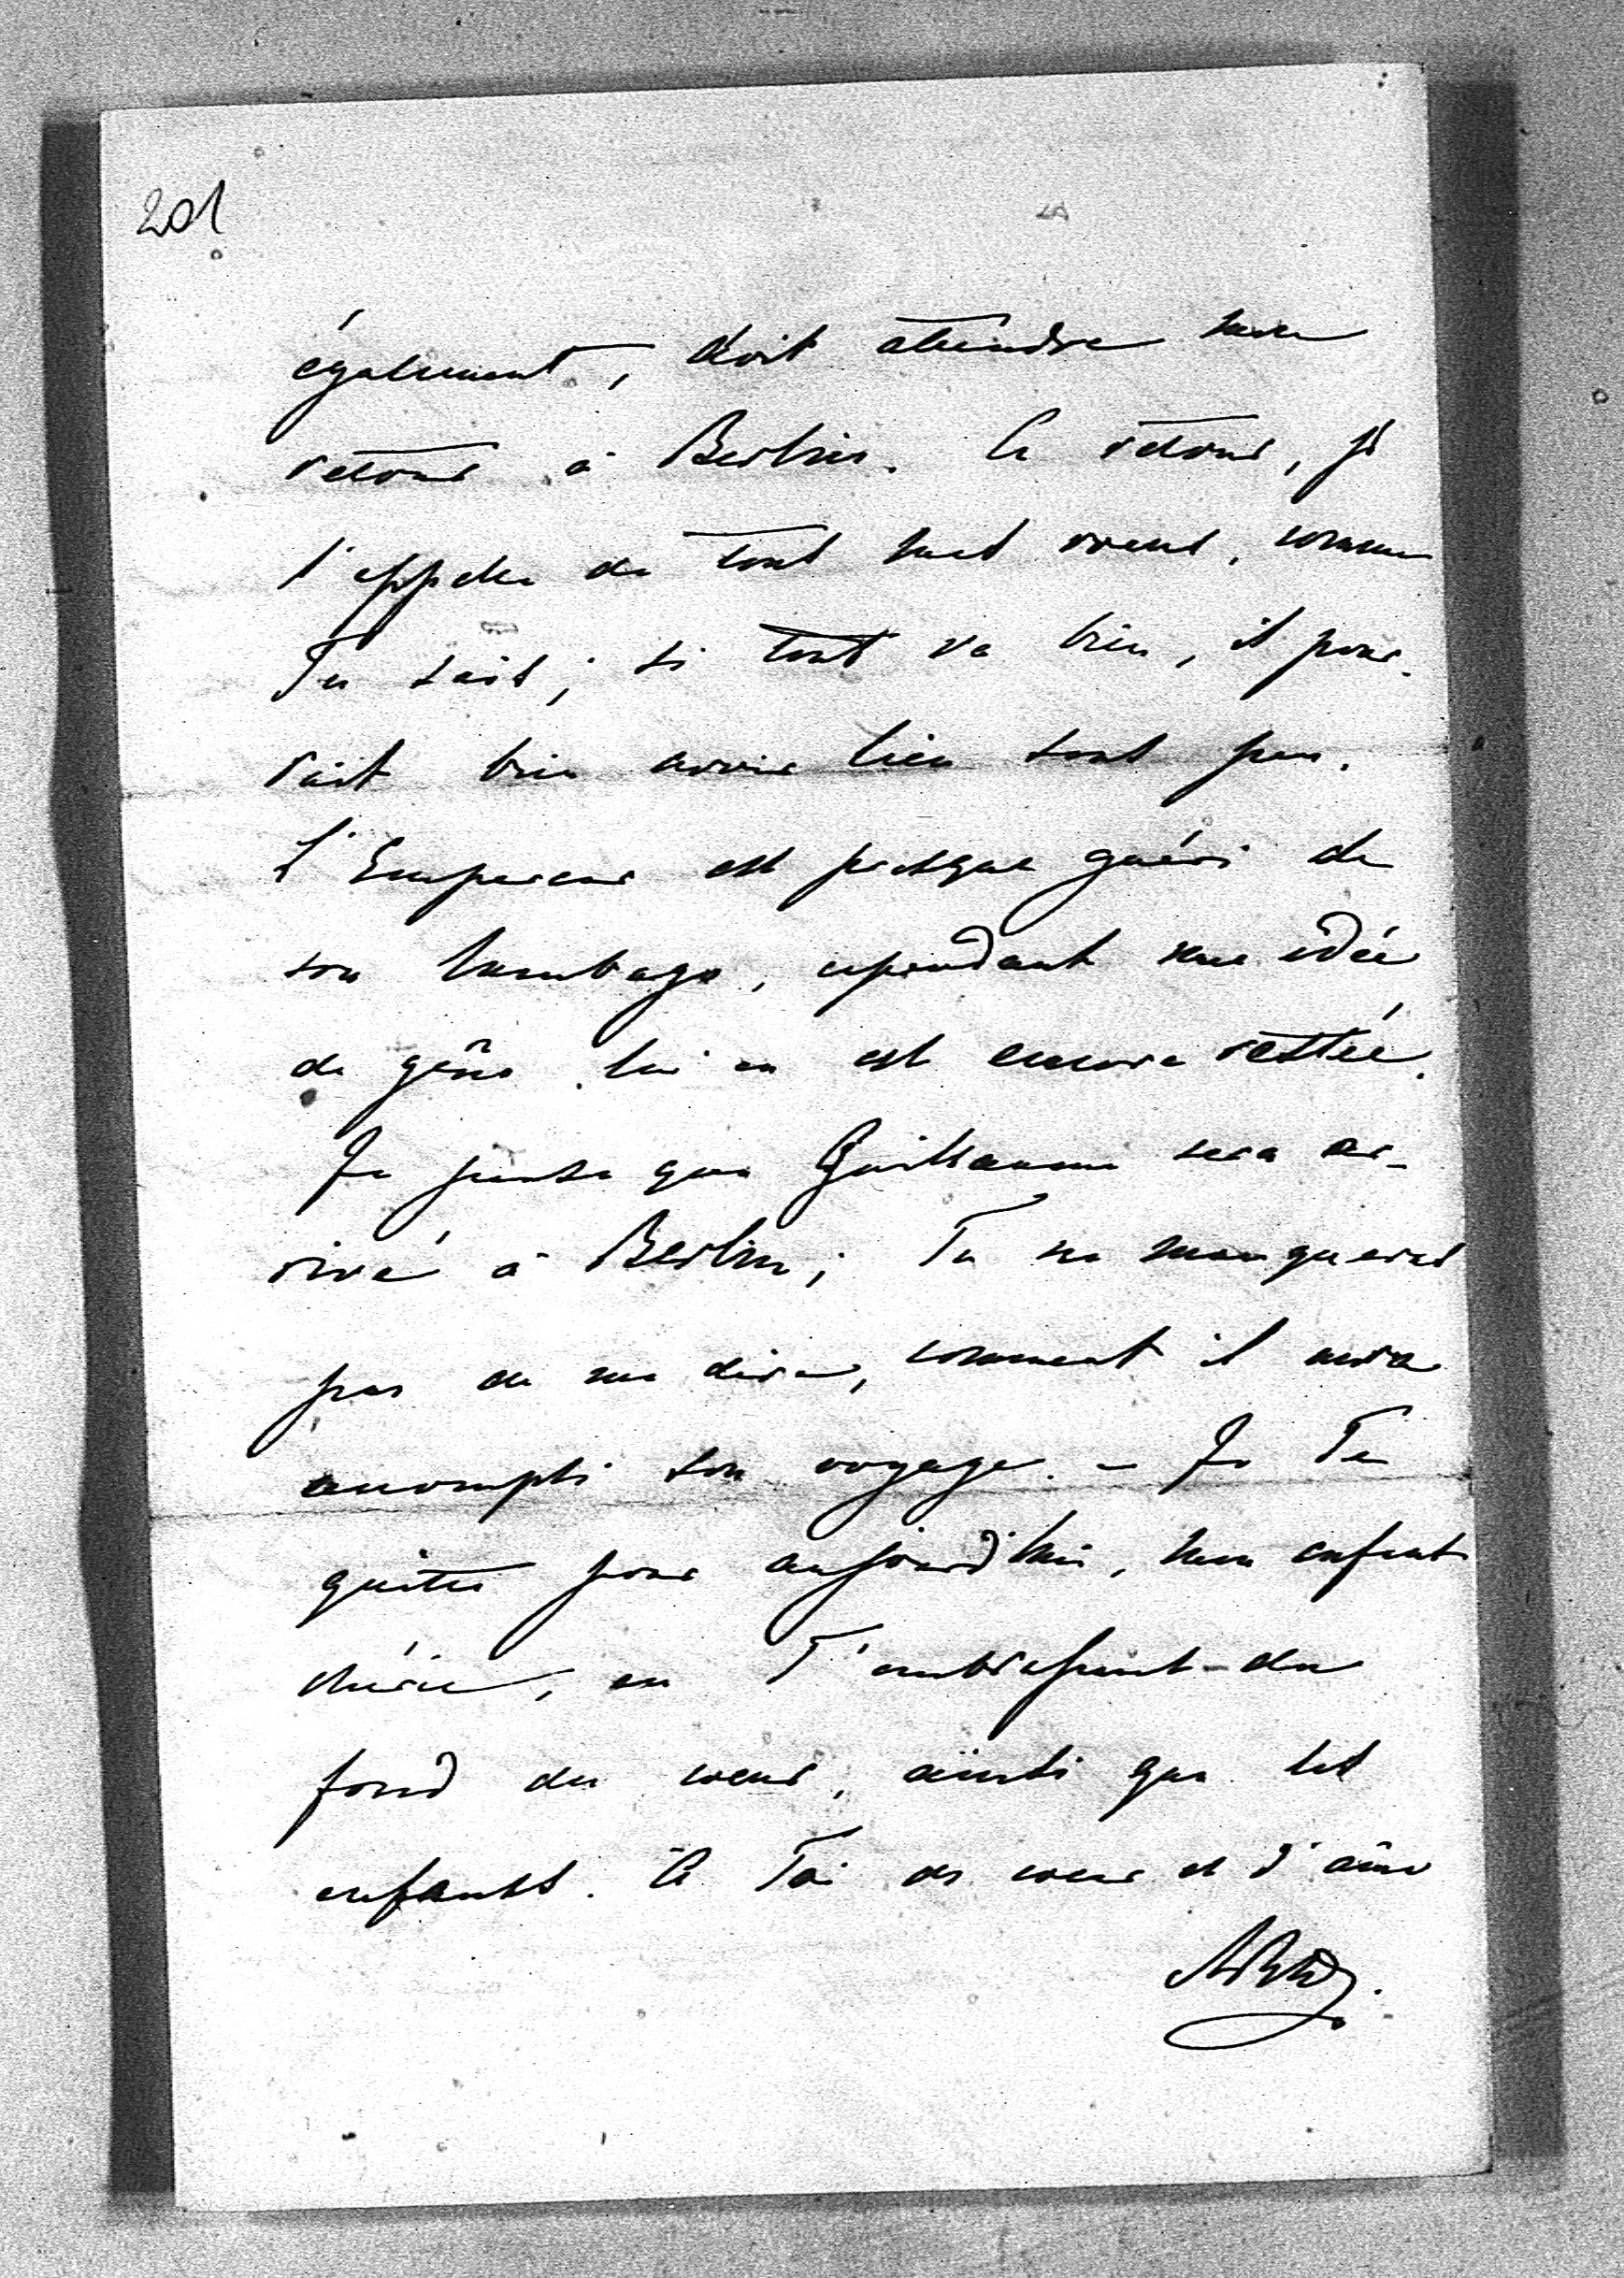 201
également, doit attendre mon
retour à Berlin. Ce retour, je
l'appelle de tout mes voeux, comme
Tu sais; si tout va bien, il pour-
rait bien avoir lieu sous peu.
L'Empereur est presque guéri de
son lumbago, cependant une idée
de gêne lui en est encore restée.
Je pense que Guillaume sera ar-
rivé à Berlin; Tu ne manqueras
pas de me dire, comment il aura
accompli son voyage. – Je Te
quitte pour aujourd'hui, mon enfant
chérie, en T'embrassant du
fond du coeur, ainsi que les
enfants. A Toi de coeur et d'âme